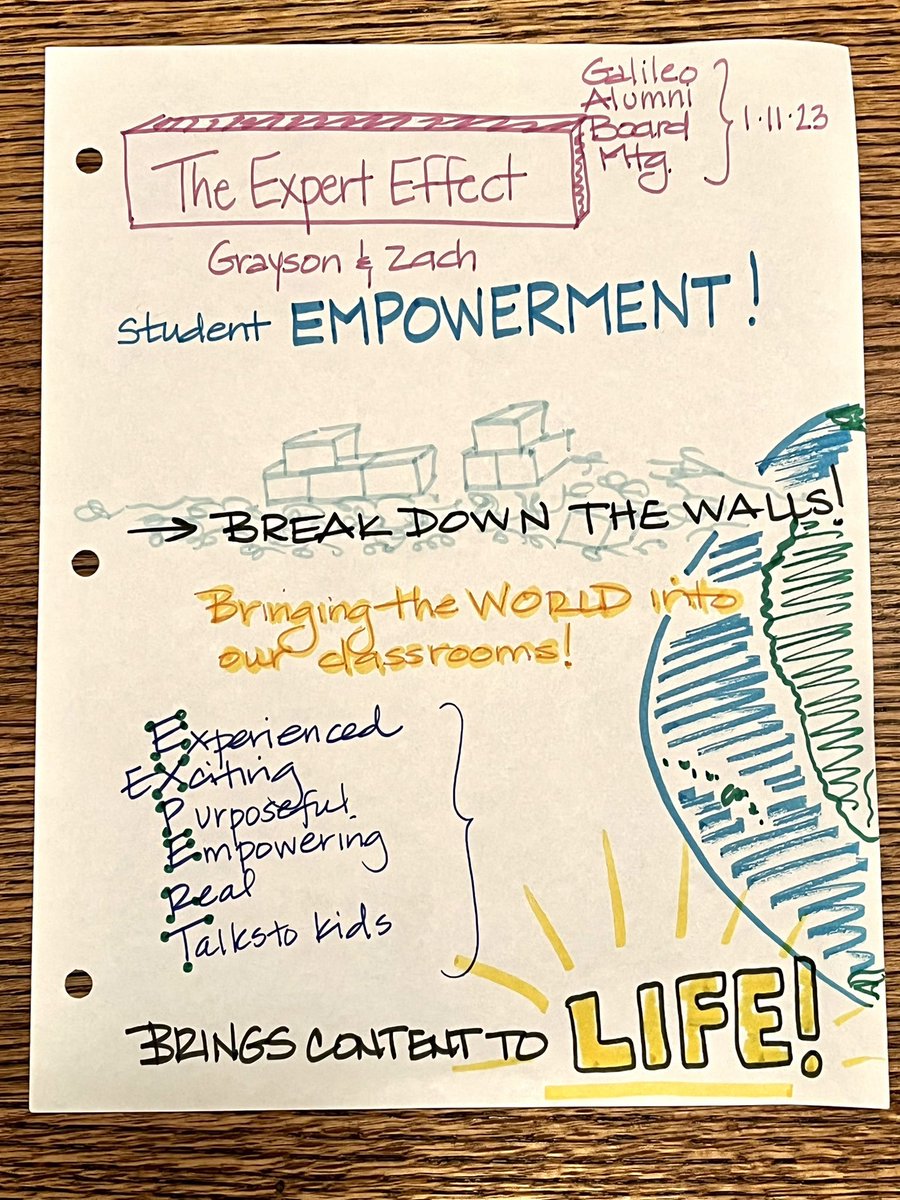 Galileo
Alumni
Board
Mtg.
1·11·23
The Expert Effect
Grayson & Zach
Student EMPOWERMENT!
→ BREAK DOWN THE WALLS!
Bringing the WORLD into
our classrooms!
Experienced
EXciting
Purposeful
Empowering
Real
Talks to kids
BRINGS CONTENT TO LIFE!